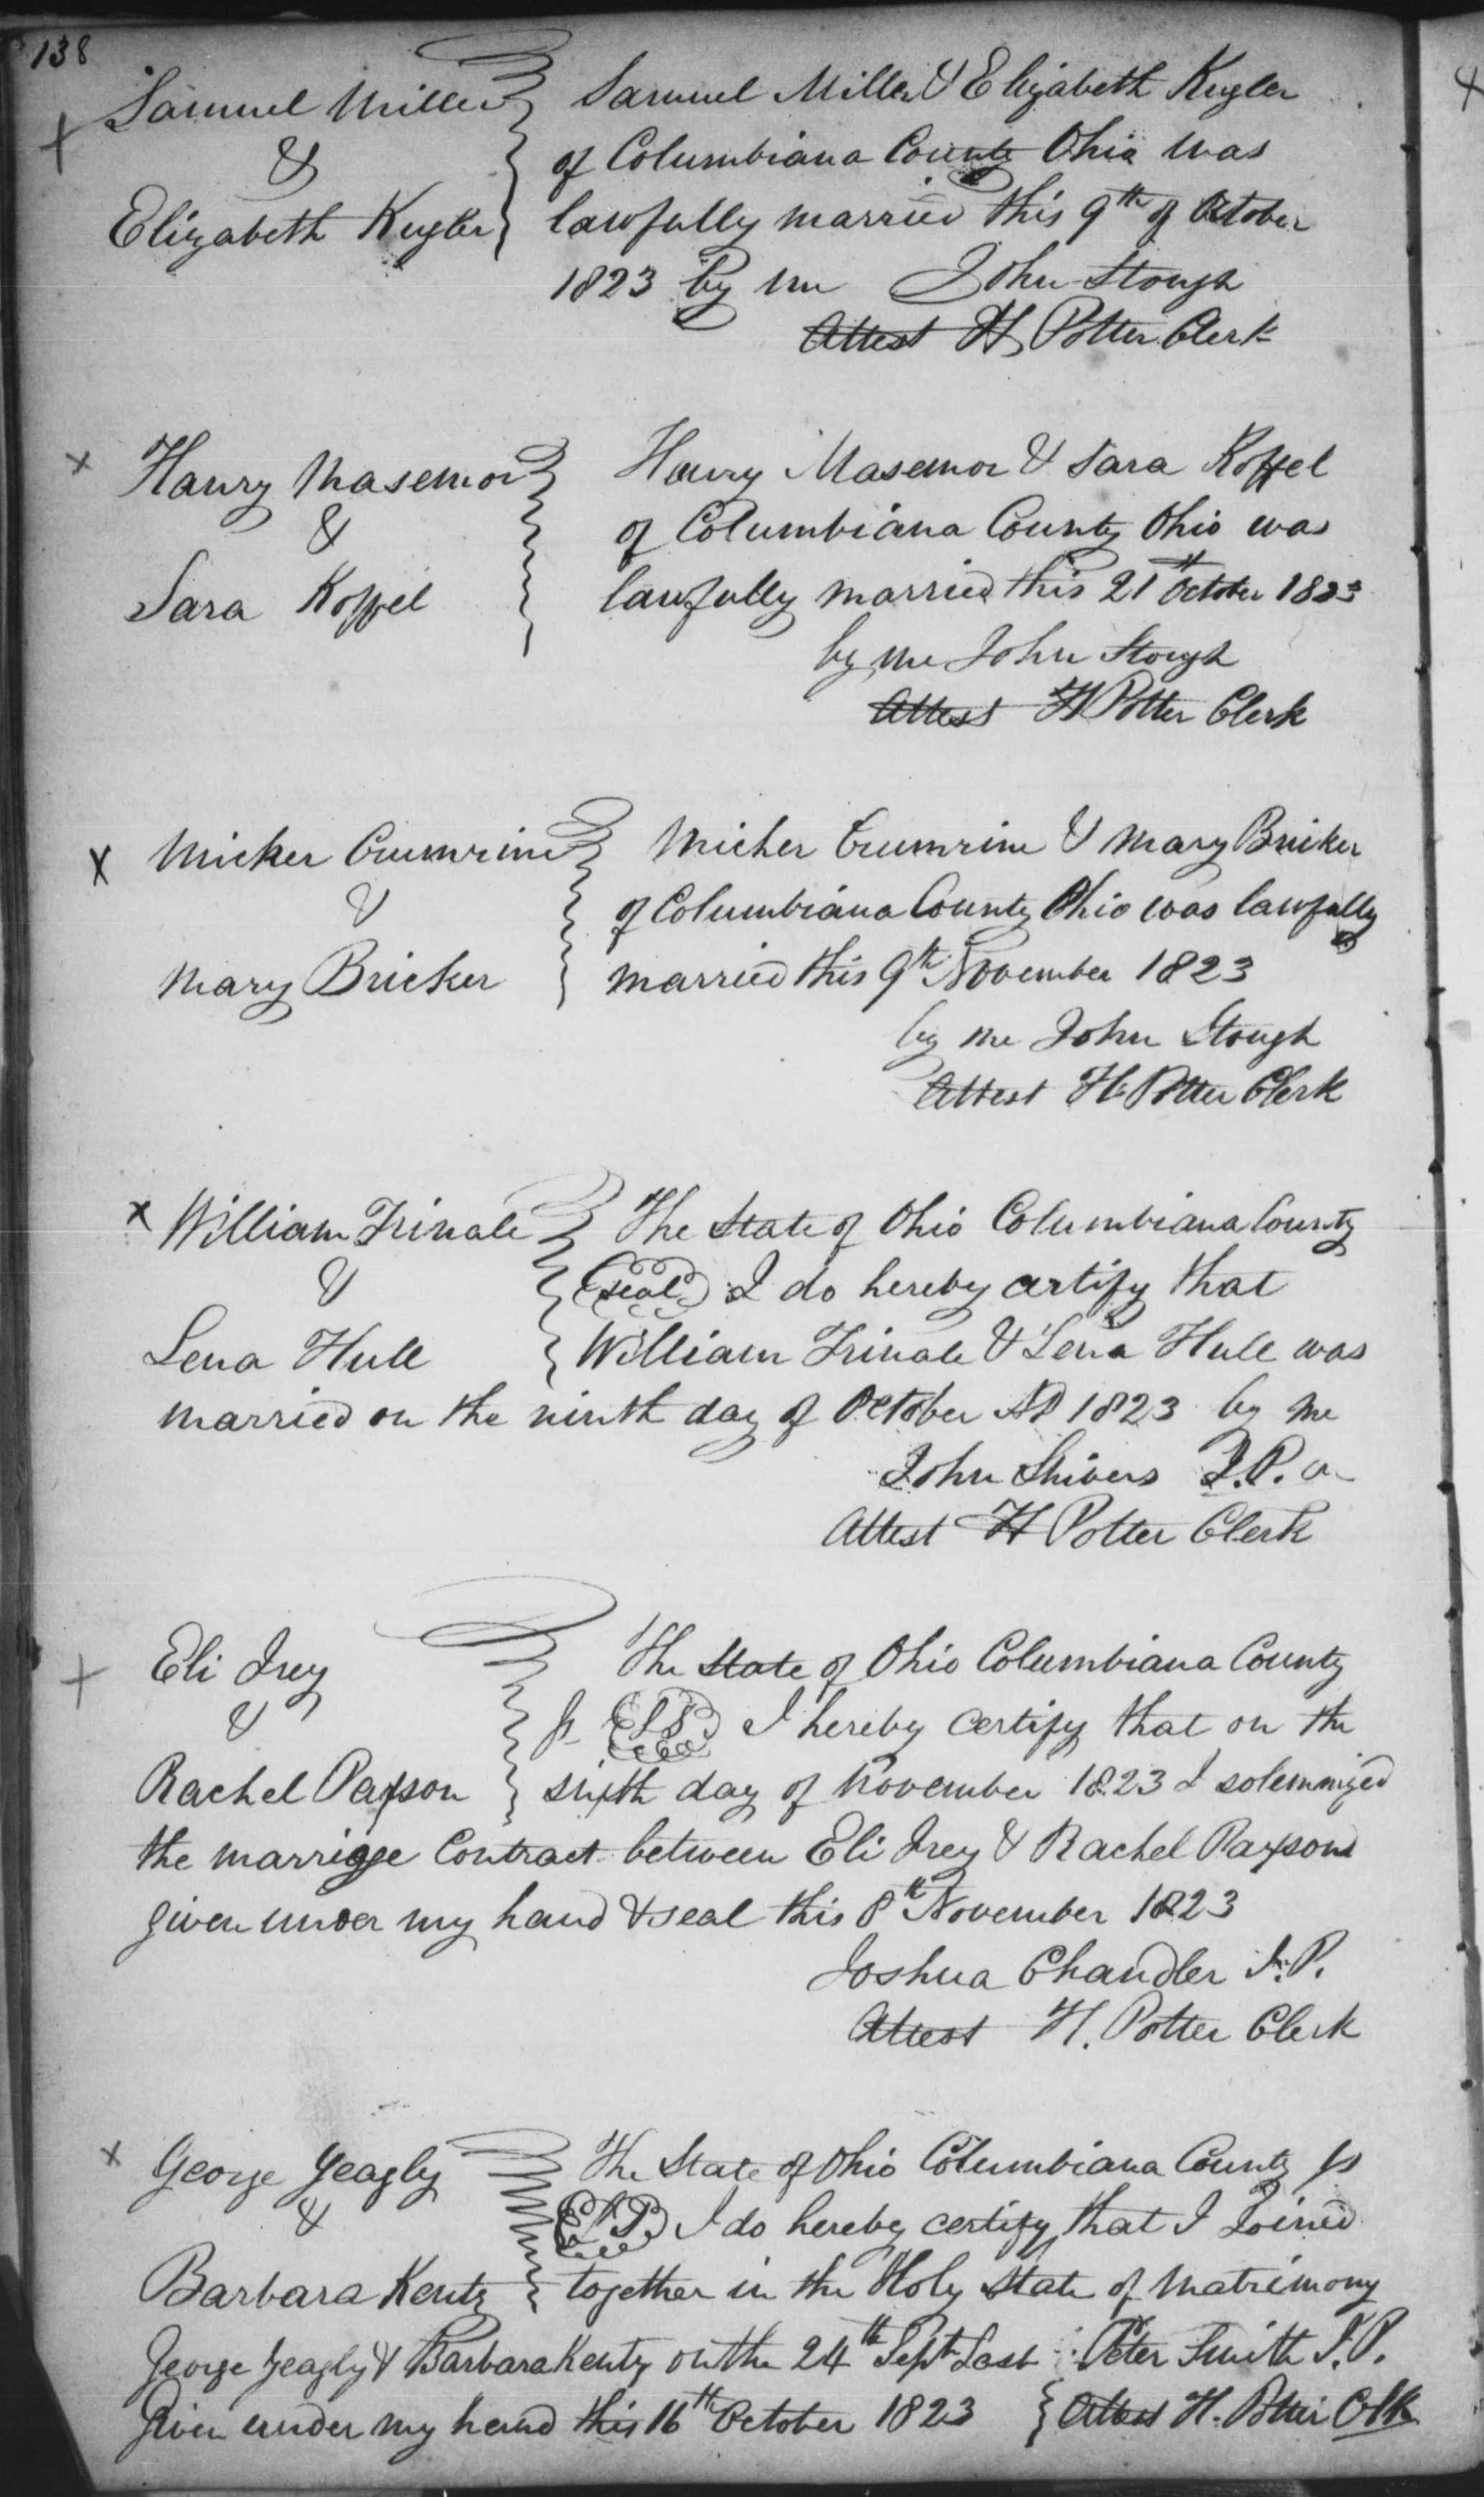 138
Samuel Miller
&
Elizabeth Kugler
Samuel Miller & Elizabeth Kugler
of Columbiana County Ohio was
lawfully married this 9th of October
1823 by me John Stough
Attest H Potter Clerk
Haury Masemor
&
Sara Koffel
Haury Masemor & Sara Koffel
of Columbiana County Ohio was
lawfully married this 21st October 1823
by me John Stough
Attest H Potter Clerk
Micher Crumrine
&
Mary Bricker
Micher Crumrine & Mary Bricker
of Columbiana County Ohio was lawfully
married this 9th November 1823
by me John Stough
Attest H. Potter Clerk
William Trinale
&
Lena Hull
The State of Ohio Columbiana County
(seal) I do hereby certify that
William Trinale & Lena Hull was
married on the ninth day of October AD 1823 by me
John Shivers J.P.
Attest H Potter Clerk
Eli Irey
&
Rachel Paxson
The State of Ohio Columbiana County
I hereby certify that on the
sixth day of November 1823 I solemnized
the marriage Contract between Eli Irey & Rachel Paxson
given under my hand & seal this 8th November 1823
Joshua Chandler J.P.
Attest H. Potter Clerk
George Yeagly
&
Barbara Kentz
The State of Ohio Columbiana County ss
I do hereby certify that I Joined
together in the Holy State of Matrimony
George Yeagly & Barbara Kentz on the 24th Sept Last Peter Smith J.P.
Given under my hand this 16th October 1823 Attest H. Potter Clk